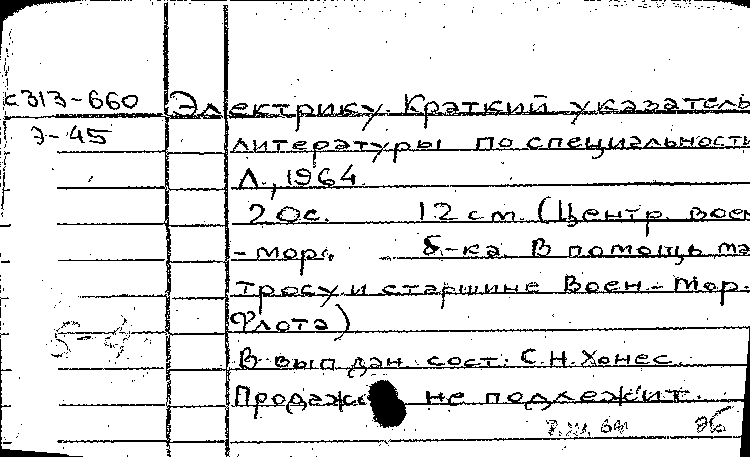 с313-660 Электрику. Краткий указатель
Э-45 литературы по специальности
Л., 1964
20с. 12 см. (Центр. воен
-морс. б-ка. В помощь ма
тросу и старшине Воен.-Мор.
Флота)
В вып дан. сост: С.Н. Хонес.
Продаже не подлежит.